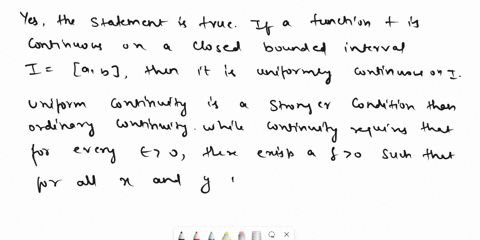 Yes, the Statement is true. If a function f is
continuous on a closed bounded interval
I = [a, b], then it is uniformly continuous on I.
Uniform continuity is a Stronger Condition than
ordinary continuity. While continuity requires that
for every ε > 0, there exists a δ > 0 Such that
for all x and y